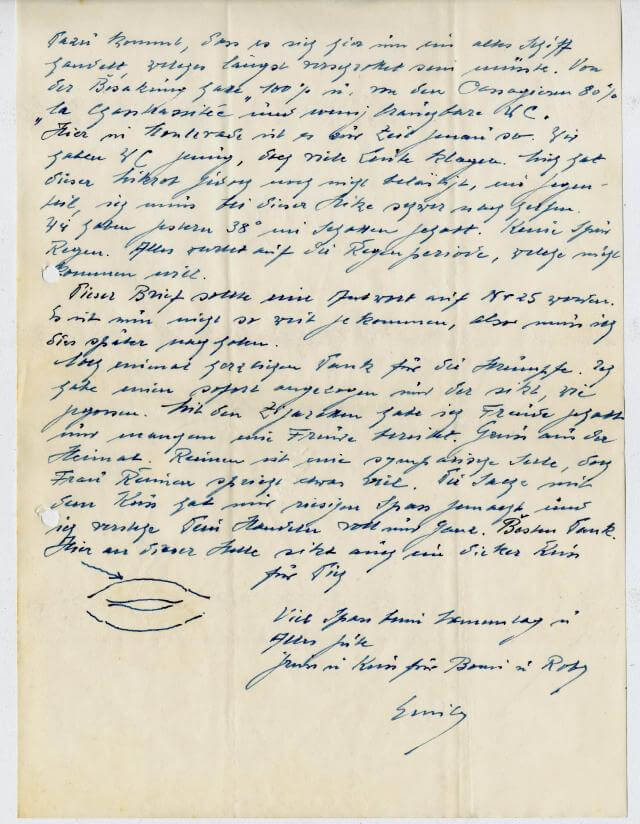 Dazu kommt, dass es sich hier um ein altes Schiff
handelt welches längst verschrottet sein müsste. Von
der Besatzung habe 100% u. von den Passagieren 80%
la und wenig brauchbare WC.
"Hier in Monlevade ist es zur Zeit genau so. Wir
haben WC genug, doch viele Leute klagen. Mich hat
dieser jedoch noch nicht belästigt, im Gegen-
teil, ich muss bei dieser Hitze schwer nachhelfen.
Wir haben gestern 38° im Schatten gehabt. Keine Spur
Regen. Alles wartet auf die Regenperiode, welche nicht
kommen will.
Dieser Brief sollte eine Antwort auf Nr 25 werden.
Es ist nun nicht so weit gekommen, also muss ich
dies später nachholen.
Noch einmal herzlichen Dank für die Strümpfe. Ich
habe einen sofort angezogen und der sitzt, wie
gegossen. Mit den habe ich Freude gehabt
und manchem eine Freude bereitet. Gruss aus der
Heimat. Reimen ist eine sympathische Seele, doch
Frau Reimen spricht etwas viel. Die Sache mit
dem Kuss hat mir riesigen Spass gemacht und
ich verstehe Dein Handeln voll und ganz. Besten Dank.
Hier an dieser Stelle sitzt auch ein dicker Kuss
für Dich
Viel Spass beim u
Alles Gute
Gruss u Kuss für u Roby
Emily